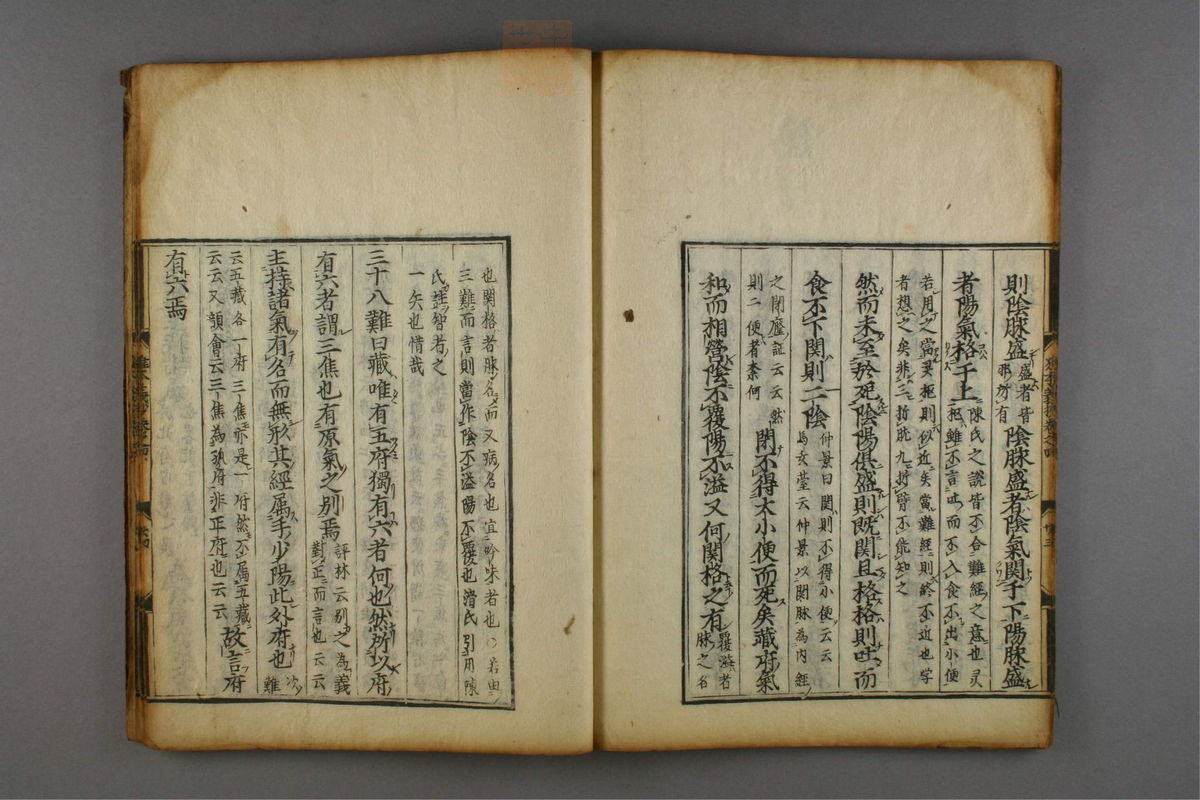 則陰脉盛盛者皆邪氣有陰脉盛者陰氣関于下陽脉盛
者陽氣格于上陳氏之說皆不合難經之意也灵枢雖不言吐而不入食不出小便
若用之當灵枢則似近矣當難經則終不近也学者想之矣非三折肱九折臂不能知之
然而未至於死陰陽俱盛則既関且格格則吐而
食不下関則二陰仲景曰関則不得小便云云馬玄䑓云仲景以関脉為内経
之閉癃証云云然則二便者柰何閉不得大小便而死矣藏府氣
和而相營陰不覆陽不溢又何関格之有羅謙者脉之名
也関格者脉名而又病名也宜吟味者也〇若由三難而言則當作陰不溢陽不覆也滑氏引用陳
氏誤智者之一矢也惜哉
三十八難曰藏唯有五府獨有六者何也然所以府
有六者謂三焦也有原氣之別焉評林云別之為義對正而言也云云
主持諸氣有名而無形其經属手少陽此外府也難
云五藏各一府三焦亦是一府然不属五藏云云又韻會云三焦為孤府非正府也云云故言府
有六焉